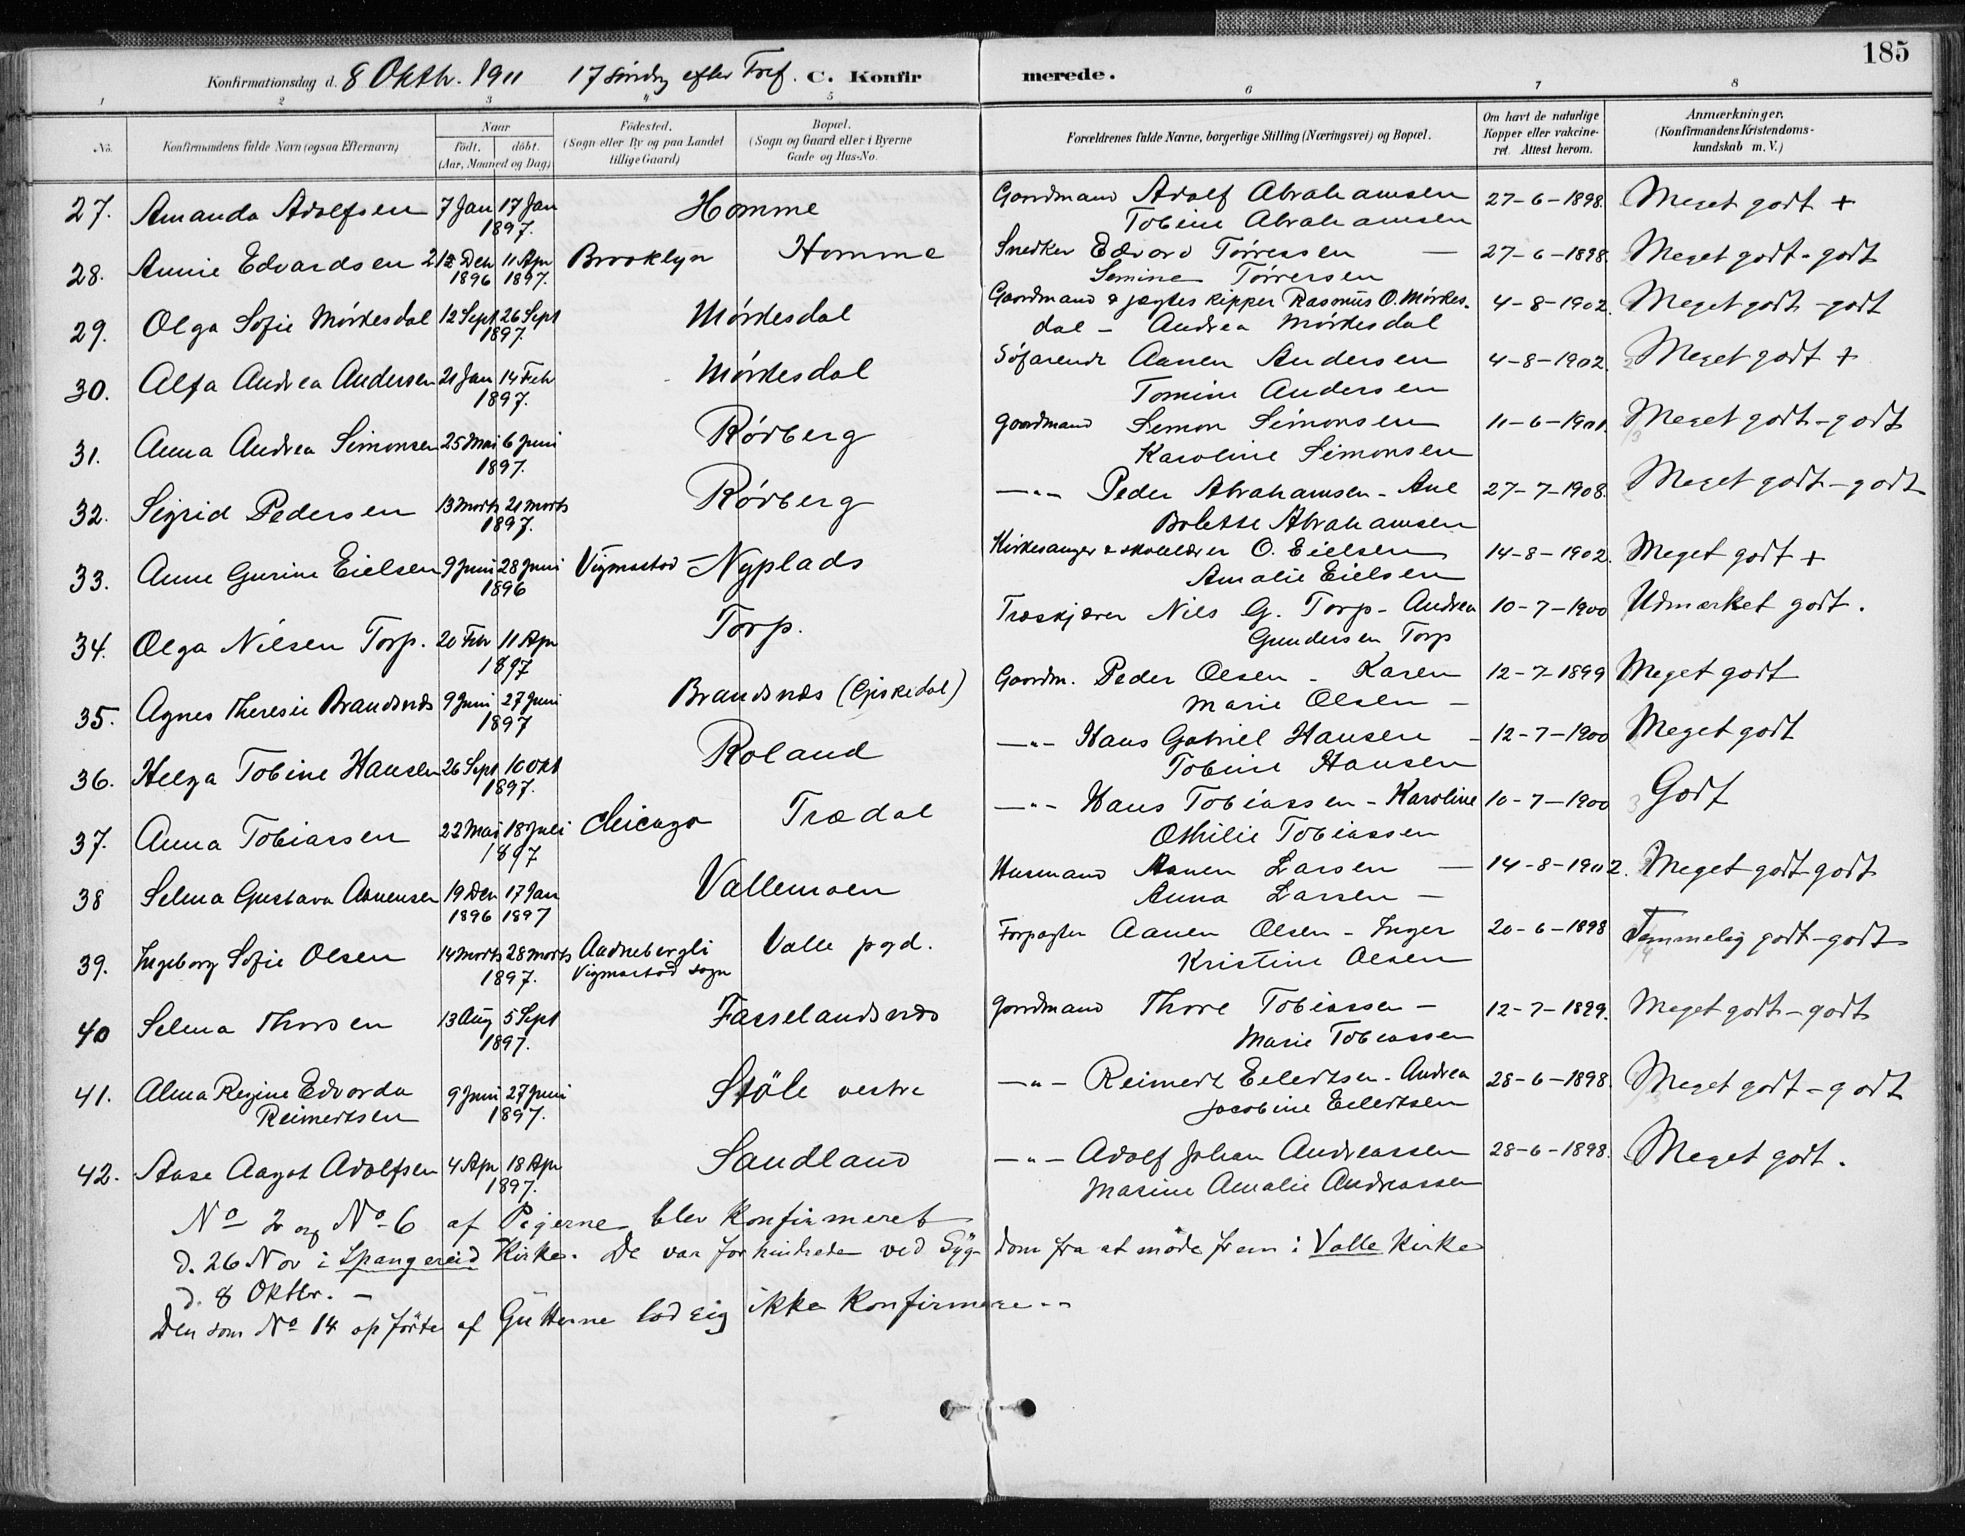 185
Konfirmationsdag d. 8 Oktbr. 1911 17 Søndag efter Tref. C. Konfirmerede.
1 2 3 4 5 6 7 8
No. Konfirmandens fulde Navn (ogsaa Efternavn) Naar født. døbt. (Aar, Maaned og Dag) Födested. (Sogn eller By og paa Landet tillige Gaard) Bopæl. (Sogn og Gaard eller i Byerne Gade og Hus-No. Forældrenes fulde Navne, borgerlige Stilling (Næringsvei) og Bopæl. Om havt de naturlige Kopper eller vakcineret. Attest herom. Anmærkninger. (Konfirmandens Kristendomskundskab m. V.)
27. Amanda Adolfsen 7 Jan 17 Jan 1897. Homme Gaardmand Adolf Abrahamsen 27-6-1898. Meget godt +
Tobine Abrahamsen
28. Annie Edvardsen Deb 1896 11 Apr 1897. Brooklyn Homme Snedker Edvard Tørressen — 27-6-1898. Meget godt - godt
Semine Tørressen
29. Olga Sofie Mørkesdal 12 Sept 26 Sept 1897. Mørkesdal Gaardmand & jagtskipper Rasmus O. Mørkes- 4-8-1902. Meget godt - godt
dal - Andrea Mørkesdal
30. Alfa Andrea Andersen 21 Jan 14 Feb 1897. Mørkesdal Søfarende Aanen Andersen 4-8-1902. Meget godt +
Tomine Andersen
31. Anna Andrea Simonsen 25 Mai 6 Juni 1897. Rødberg Gaardmand Semon Simonsen 11-6-1901. Meget godt - godt
Karoline Simonsen
32. Sigrid Pedersen 13 Marts 21 Marts 1897. Rødberg —"— Peder Abrahamsen - Ane 27-7-1908. Meget godt - godt
Bolette Abrahamsen
33. Anne Gurine Eielsen 9 Juni 28 Juni 1896 Vigmostad - Nyplads Kirkesanger & skolelærer O. Eielsen 14-8-1902. Meget godt +
Amalie Eielsen
34. Olga Nilsen Torp. 20 Feb 11 Apr 1897 Torp. Træskjærer Nils G. Torp - Andrea 10-7-1900 Udmærket godt.
Gundersen Torp
35. Agnes Theresie Brandsnæs 9 Juni 27 Juni 1897 Brandsnæs (Gjiskedal) Gaardm. Peder Olsen - Karen 12-7-1899 Meget godt
Marie Olsen -
36. Helga Tobine Hansen 26 Sept 10 Okt 1897. Roland —"— Hans Gabriel Hansen - 12-7-1900 Meget godt
Tobine Hansen
37. Anna Tobiassen 22 Mai 18 Juli 1897 Chicago Trædal —"— Hans Tobiassen - Karoline 10-7-1900 Godt
Othilie Tobiassen
38 Selma Gustava Aanensen 19 Deb 1896 17 Jan 1897 Vallemoen Husmand Aanen Larsen — 14-8-1902. Meget godt - godt
Anna Larsen -
39. Ingeborg Sofie Olsen 14 Marts 28 Marts 1897. Aadnebergli Vigmostad sogn Valle pgd. Forpagter Aanen Olsen - Inger 20-6-1898 Temmelig godt - godt
Kristine Olsen
40 Selma Thorsen 13 Aug 5 Sept 1897. Fasselandsnæs Gaardmand Thore Tobiassen - 12-7-1899. Meget godt - godt
Marie Tobiassen
41. Alma Regine Edvarda Reimertsen 9 Juni 27 Juni 1897. Støle vestre —"— Reimert Eilertsen - Andrea 28-6-1898. Meget godt - godt
Jacobine Eilertsen
42. Aase Aagot Adolfsen 4 Apr 18 Apr 1897. Sandland —"— Adolf Johan Andreassen 28-6-1898. Meget godt.
Marine Amalie Andreassen
No 2 og No 6 af Pigerne blev konfirmeret
d. 26 Nov i Spangereid Kirke. De var forhindrede ved Sygdom fra at møde frem i Valle Kirke
d. 8 Oktbr. —
Den som No 14 opførte af Gutterne lod sig ikke konfirmere. -